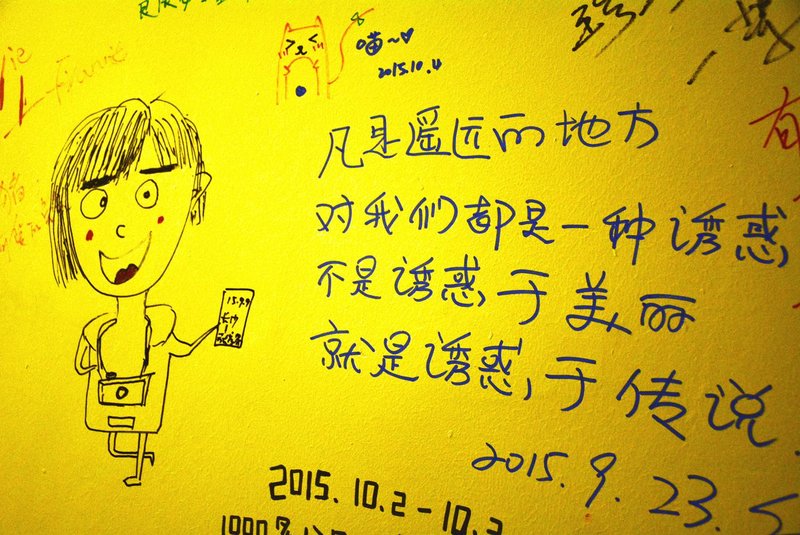 喵~
2015.10.4
凡是遥远的地方
对我们都是一种诱惑
不是诱惑于美丽
就是诱惑于传说
2015.9.23.
15.9.9
长沙
2015.10.2-10.3
有